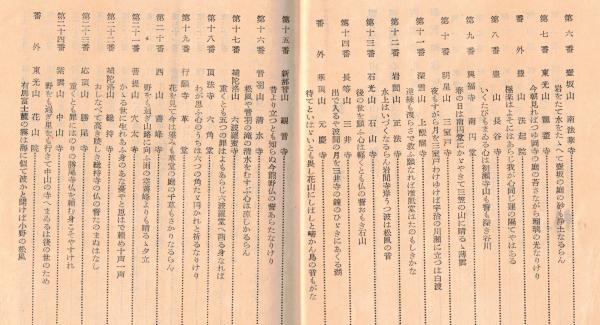 第六番 壺坂山 南法華寺
岩をたて水をたゝへて壺坂の庭の砂も浄土なるらん
第七番 東光山 龍蓋寺
今朝見れば つゆ岡寺の庭の苔さながら瑠璃の光なりけり
番外 豊山 法起院
極楽はよそにはあらじ我が心同じ蓮の隔てやはある
第八番 豊山 長谷寺
いくたびもまゐる心は初瀬寺山も誓も深き谷川
第九番 興福寺 南円堂
春の日は南円堂にかゞやきて三笠の山に晴るゝ薄雲
第十番 明星山 三室戸寺
夜もすがら月を三室戸わけゆけば宇治の川瀬に立つは白波
第十一番 深雪山 上醍醐寺
逆縁も漏らさで救ふ願なれば准胝堂はたのもしきかな
第十二番 岩間山 正法寺
水上はいづくなるらん岩間寺岸うつ波は松風の音
第十三番 石光山 石山寺
後の世を願ふ心は軽くとも仏の誓おもき石山
第十四番 長等山 三井寺
出で入るや波間の月を三井寺の鐘のひゞきにあくる湖
番外 華頂山 元慶寺
待てといはゞいとも畏し花山にしばしと啼かん鳥の音もがな
第十五番 新那智山 観音寺
昔より立つとも知らぬ今熊野仏の誓あらたなりけり
第十六番 音羽山 清水寺
松風や音羽の滝の清水をむすぶ心は涼しかるらん
第十七番 補陀洛山 六波羅蜜寺
重くとも五つの罪はよもあらじ六波羅堂へ参る身なれば
第十八番 頂法寺 六角堂
わが思ふ心のうちは六つの角たゞ円かれと祈るなりけり
第十九番 行願寺 革堂
花を見て今は望みも革堂の庭の千草もさかりなるらん
第二十番 西山 善峰寺
野をも過ぎ山路に向ふ雨の空善峰よりも晴るゝ夕立
第二十一番 菩提山 穴太寺
かゝる世に生れあふ身のあな憂やと思はで頼め十声一声
第二十二番 補陀洛山 総持寺
おしなべて老も若きも総持寺の仏の誓たのまぬはなし
第二十三番 応頂山 勝尾寺
重くとも罪にはのりの勝尾寺仏を頼む身こそやすけれ
第二十四番 紫雲山 中山寺
野をも過ぎ里をも行きて中山の寺へまゐるは後の世のため
番外 東光山 花山院
有馬富士麓の霧は海に似て波かと聞けば小野の松風